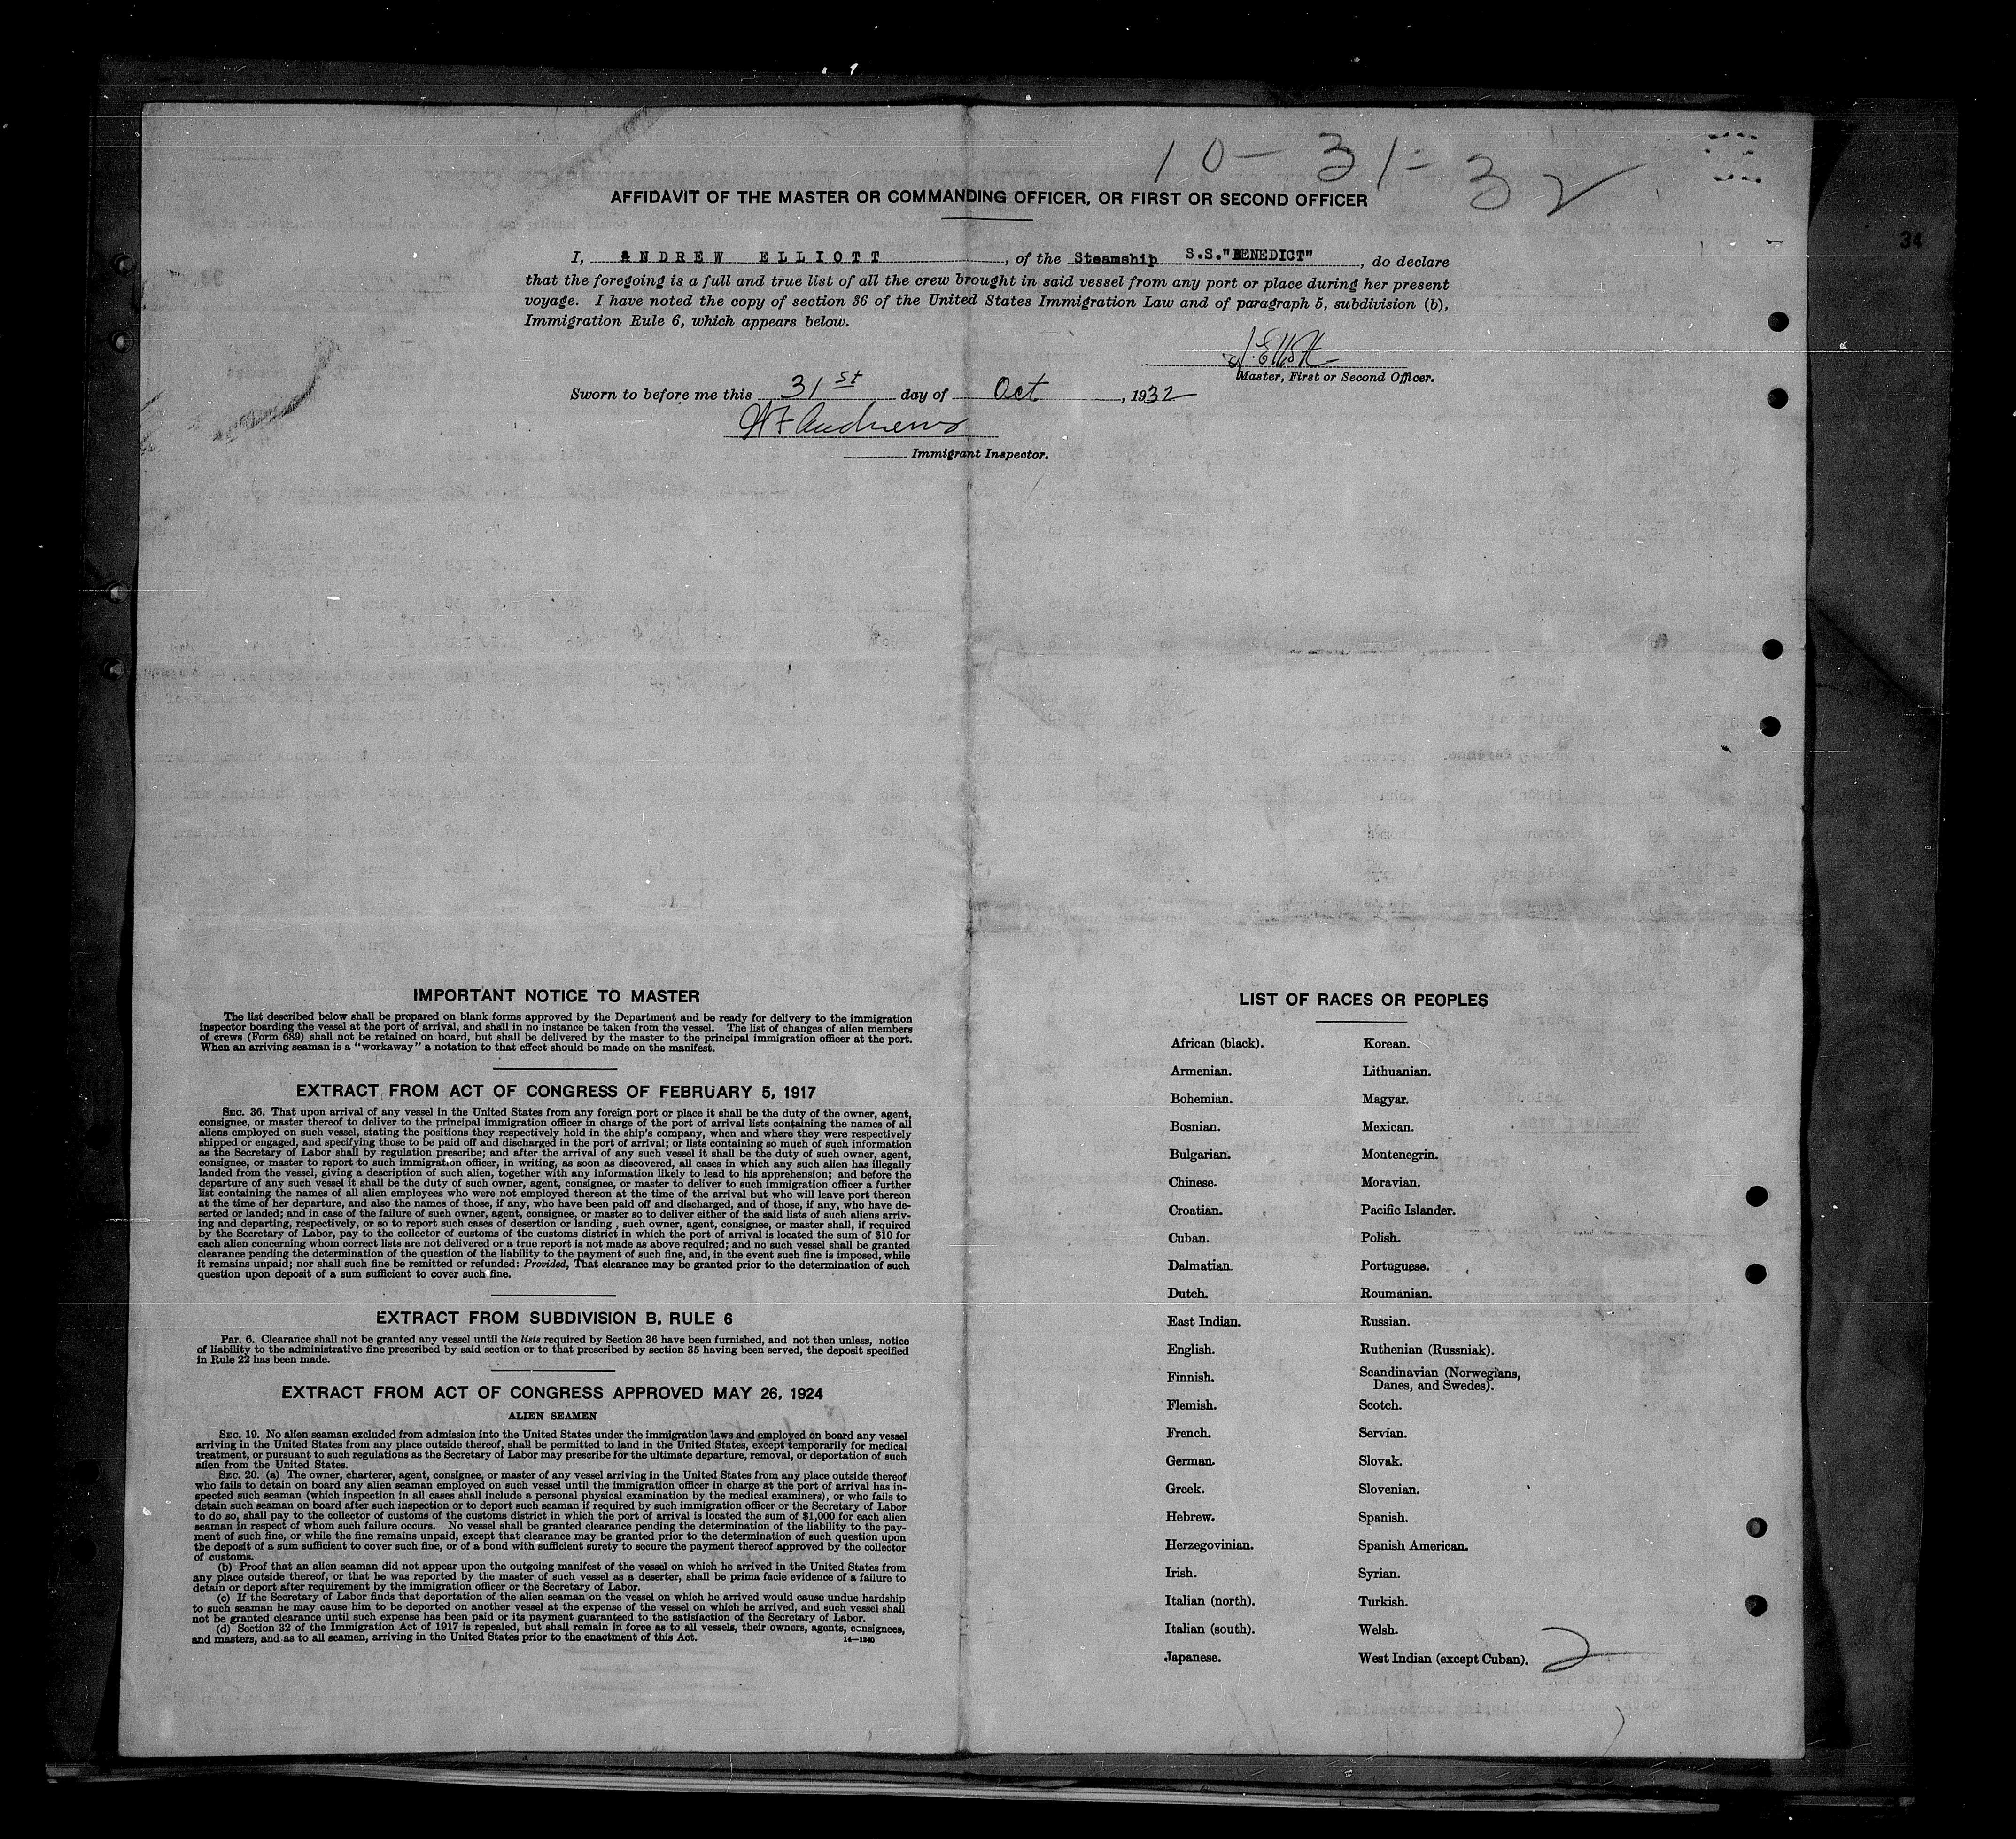 10-31-32
AFFIDAVIT OF THE MASTER OR COMMANDING OFFICER, OR FIRST OR SECOND OFFICER
34
I, ANDREW ELLIOTT, of the Steamship S.S."BENEDICT", do declare
that the foregoing is a full and true list of all the crew brought in said vessel from any port or place during her present
voyage. I have noted the copy of section 36 of the United States Immigration Law and of paragraph 5, subdivision (b),
Immigration Rule 6, which appears below.
A. Elliott
Master, First or Second Officer.
Sworn to before me this 31st day of Oct, 1932
Andrews
Immigrant Inspector.
IMPORTANT NOTICE TO MASTER
The list described below shall be prepared on blank forms approved by the Department and be ready for delivery to the immigration
inspector boarding the vessel at the port of arrival, and shall in no instance be taken from the vessel. The list of changes of alien members
of crews (Form 689) shall not be retained on board, but shall be delivered by the master to the principal immigration officer at the port.
When an arriving seaman is a "workaway" a notation to that effect should be made on the manifest.
EXTRACT FROM ACT OF CONGRESS OF FEBRUARY 5, 1917
SEC. 36. That upon arrival of any vessel in the United States from any foreign port or place it shall be the duty of the owner, agent,
consignee, or master thereof to deliver to the principal immigration officer in charge of the port of arrival lists containing the names of all
aliens employed on such vessel, stating the positions they respectively hold in the ship's company, when and where they were respectively
shipped or engaged, and specifying those to be paid off and discharged in the port of arrival; or lists containing so much of such information
as the Secretary of Labor shall by regulation prescribe; and after the arrival of any such vessel it shall be the duty of such owner, agent,
consignee, or master to report to such immigration officer, in writing, as soon as discovered, all cases in which any such alien has illegally
landed from the vessel, giving a description of such alien, together with any information likely to lead to his apprehension; and before the
departure of any such vessel it shall be the duty of such owner, agent, consignee, or master to deliver to such immigration officer a further
list containing the names of all alien employees who were not employed thereon at the time of the arrival but who will leave port thereon
at the time of her departure, and also the names of those, if any, who have been paid off and discharged, and of those, if any, who have de-
serted or landed; and in case of the failure of such owner, agent, consignee, or master so to deliver either of the said lists of such aliens arriv-
ing and departing, respectively, or so to report such cases of desertion or landing , such owner, agent, consignee, or master shall, if required
by the Secretary of Labor, pay to the collector of customs of the customs district in which the port of arrival is located the sum of $10 for
each alien concerning whom correct lists are not delivered or a true report is not made as above required; and no such vessel shall be granted
clearance pending the determination of the question of the liability to the payment of such fine, and, in the event such fine is imposed, while
it remains unpaid; nor shall such fine be remitted or refunded: Provided, That clearance may be granted prior to the determination of such
question upon deposit of a sum sufficient to cover such fine.
EXTRACT FROM SUBDIVISION B, RULE 6
Par. 6. Clearance shall not be granted any vessel until the lists required by Section 36 have been furnished, and not then unless, notice
of liability to the administrative fine prescribed by said section or to that prescribed by section 35 having been served, the deposit specified
in Rule 22 has been made.
EXTRACT FROM ACT OF CONGRESS APPROVED MAY 26, 1924
ALIEN SEAMEN
SEC. 19. No alien seaman excluded from admission into the United States under the immigration laws and employed on board any vessel
arriving in the United States from any place outside thereof, shall be permitted to land in the United States, except temporarily for medical
treatment, or pursuant to such regulations as the Secretary of Labor may prescribe for the ultimate departure, removal, or deportation of such
alien from the United States.
SEC. 20. (a) The owner, charterer, agent, consignee, or master of any vessel arriving in the United States from any place outside thereof
who fails to detain on board any alien seaman employed on such vessel until the immigration officer in charge at the port of arrival has in-
spected such seaman (which inspection in all cases shall include a personal physical examination by the medical examiners), or who fails to
detain such seaman on board after such inspection or to deport such seaman if required by such immigration officer or the Secretary of Labor
to do so, shall pay to the collector of customs of the customs district in which the port of arrival is located the sum of $1,000 for each alien
seaman in respect of whom such failure occurs. No vessel shall be granted clearance pending the determination of the liability to the pay-
ment of such fine, or while the fine remains unpaid, except that clearance may be granted prior to the determination of such question upon
the deposit of a sum sufficient to cover such fine, or of a bond with sufficient surety to secure the payment thereof approved by the collector
of customs.
(b) Proof that an alien seaman did not appear upon the outgoing manifest of the vessel on which he arrived in the United States from
any place outside thereof, or that he was reported by the master of such vessel as a deserter, shall be prima facie evidence of a failure to
detain or deport after requirement by the immigration officer or the Secretary of Labor.
(c) If the Secretary of Labor finds that deportation of the alien seaman on the vessel on which he arrived would cause undue hardship
to such seaman he may cause him to be deported on another vessel at the expense of the vessel on which he arrived, and such vessel shall
not be granted clearance until such expense has been paid or its payment guaranteed to the satisfaction of the Secretary of Labor.
(d) Section 32 of the Immigration Act of 1917 is repealed, but shall remain in force as to all vessels, their owners, agents, consignees,
and masters, and as to all seamen, arriving in the United States prior to the enactment of this Act.
14—1240
LIST OF RACES OR PEOPLES
African (black).
Armenian.
Bohemian.
Bosnian.
Bulgarian.
Chinese.
Croatian.
Cuban.
Dalmatian.
Dutch.
East Indian.
English.
Finnish.
Flemish.
French.
German.
Greek.
Hebrew.
Herzegovinian.
Irish.
Italian (north).
Italian (south).
Japanese.
Korean.
Lithuanian.
Magyar.
Mexican.
Montenegrin.
Moravian.
Pacific Islander.
Polish.
Portuguese.
Roumanian.
Russian.
Ruthenian (Russniak).
Scandinavian (Norwegians,
Danes, and Swedes).
Scotch.
Servian.
Slovak.
Slovenian.
Spanish.
Spanish American.
Syrian.
Turkish.
Welsh.
West Indian (except Cuban).
2